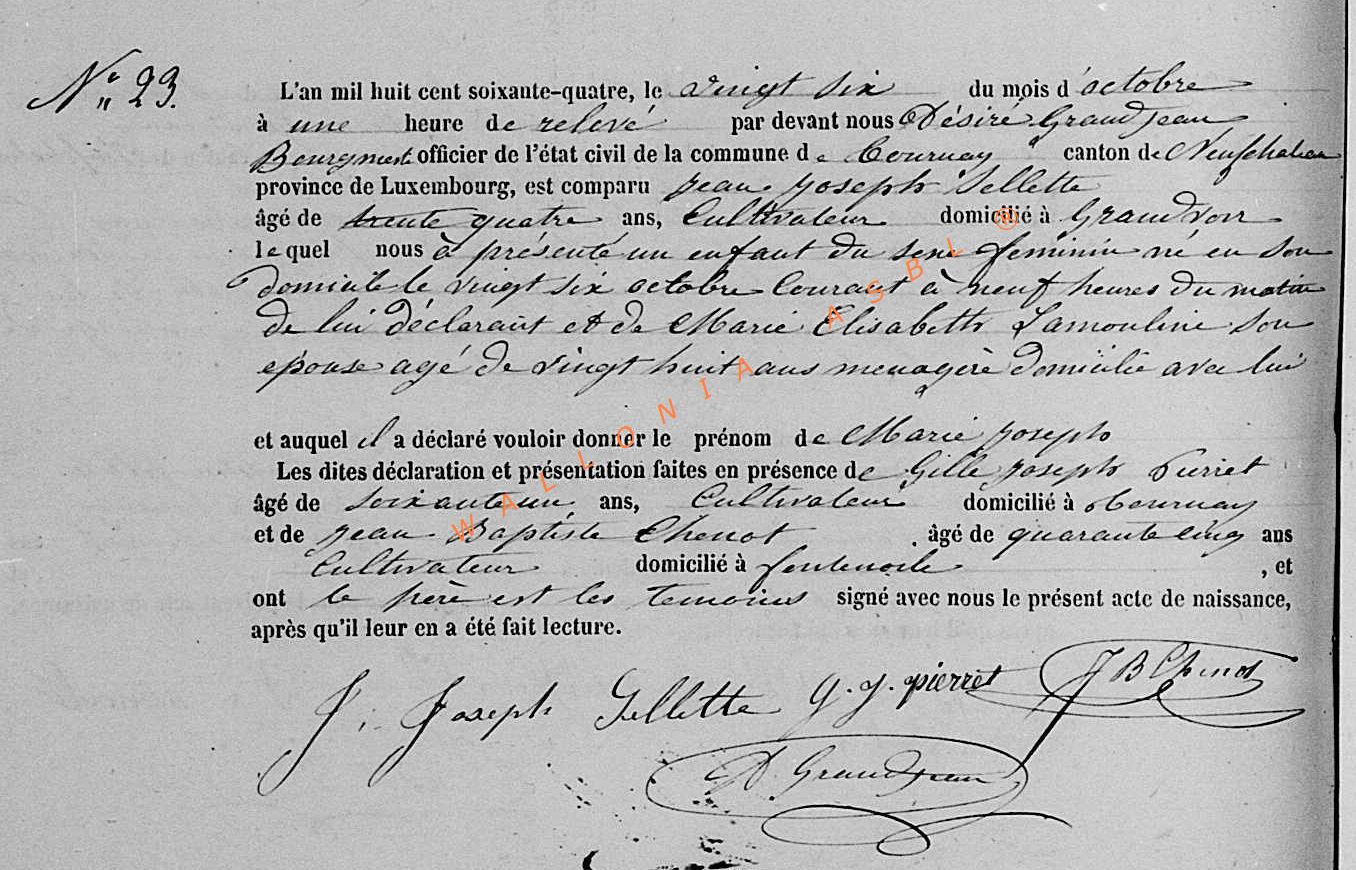 N° 23.
L'an mil huit cent soixante-quatre, le vingt six du mois d'octobre
à une heure de relevé par devant nous Désiré Grandjean
Bourgmest officier de l'état civil de la commune de Tournay canton de Neufchateau
province de Luxembourg, est comparu jean joseph Sellette
âgé de trente quatre ans, Cultivateur domicilié à Grandvoir
lequel nous à présenté un enfant du sexe feminin né en son
domicile le vingt six octobre Courant à neuf heures du matin
de lui déclarant et de Marie Elisabeth Lamouline son
epouse agé de vingt huit ans menagère domicilié avec lui
et auquel il a déclaré vouloir donner le prénom de Marie joseph
Les dites déclaration et présentation faites en présence de Gille joseph Pierret
âgé de soixante un ans, Cultivateur domicilié à Tournay
et de jean Baptiste Chenot âgé de quarante cinq ans
Cultivateur domicilié à , et
ont le père est les temoins signé avec nous le présent acte de naissance,
après qu'il leur en a été fait lecture.
J. Joseph Sellette G. J. pierret J B Chenot
D. Grandjean
WALLONIA ASBL ®